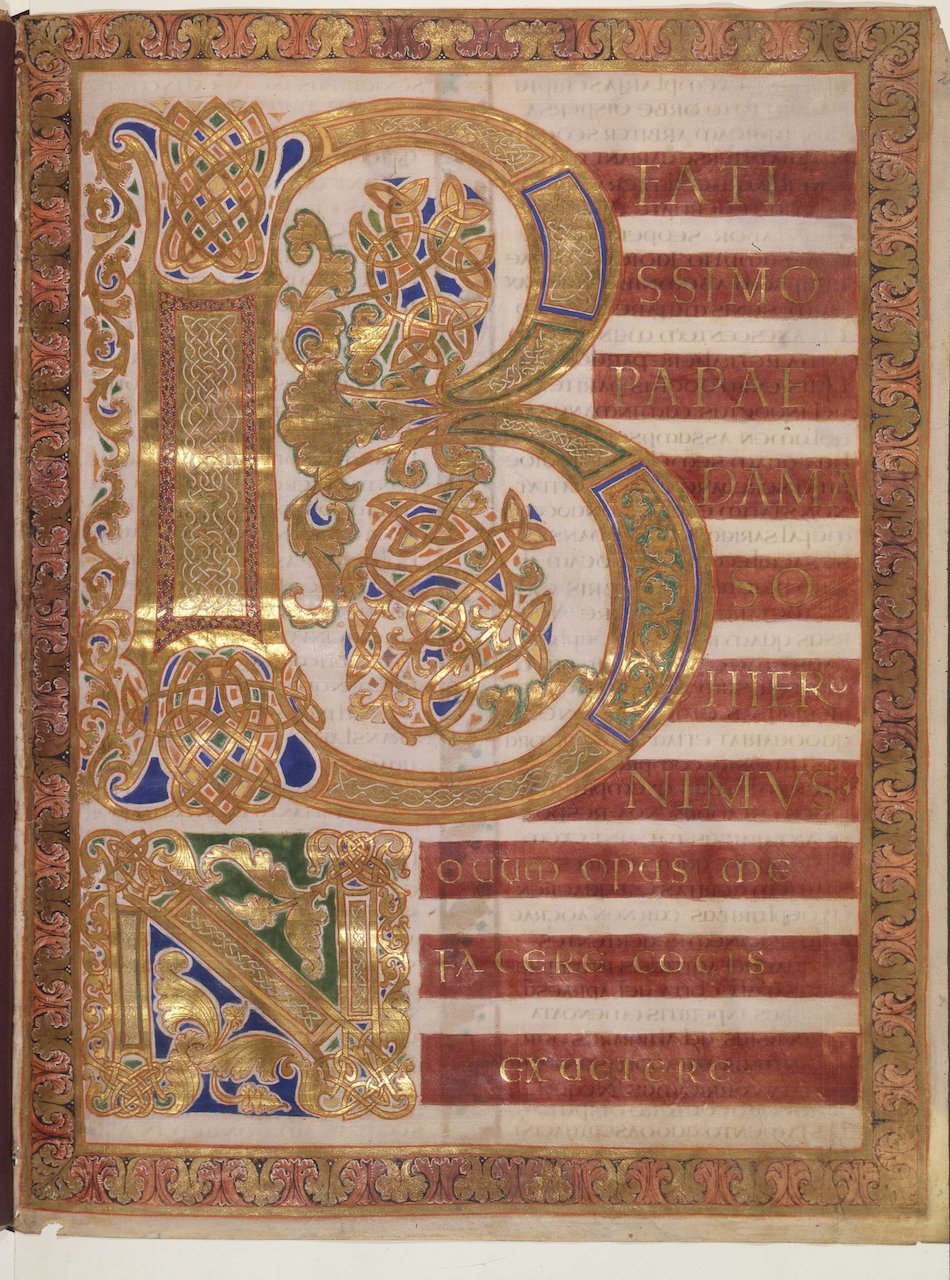 BEATI
SSIMO
PAPAE
DAMA
SO
HIERO
NIMVS
NOUUM OPUS ME
FACERE COGIS
EX UETERE